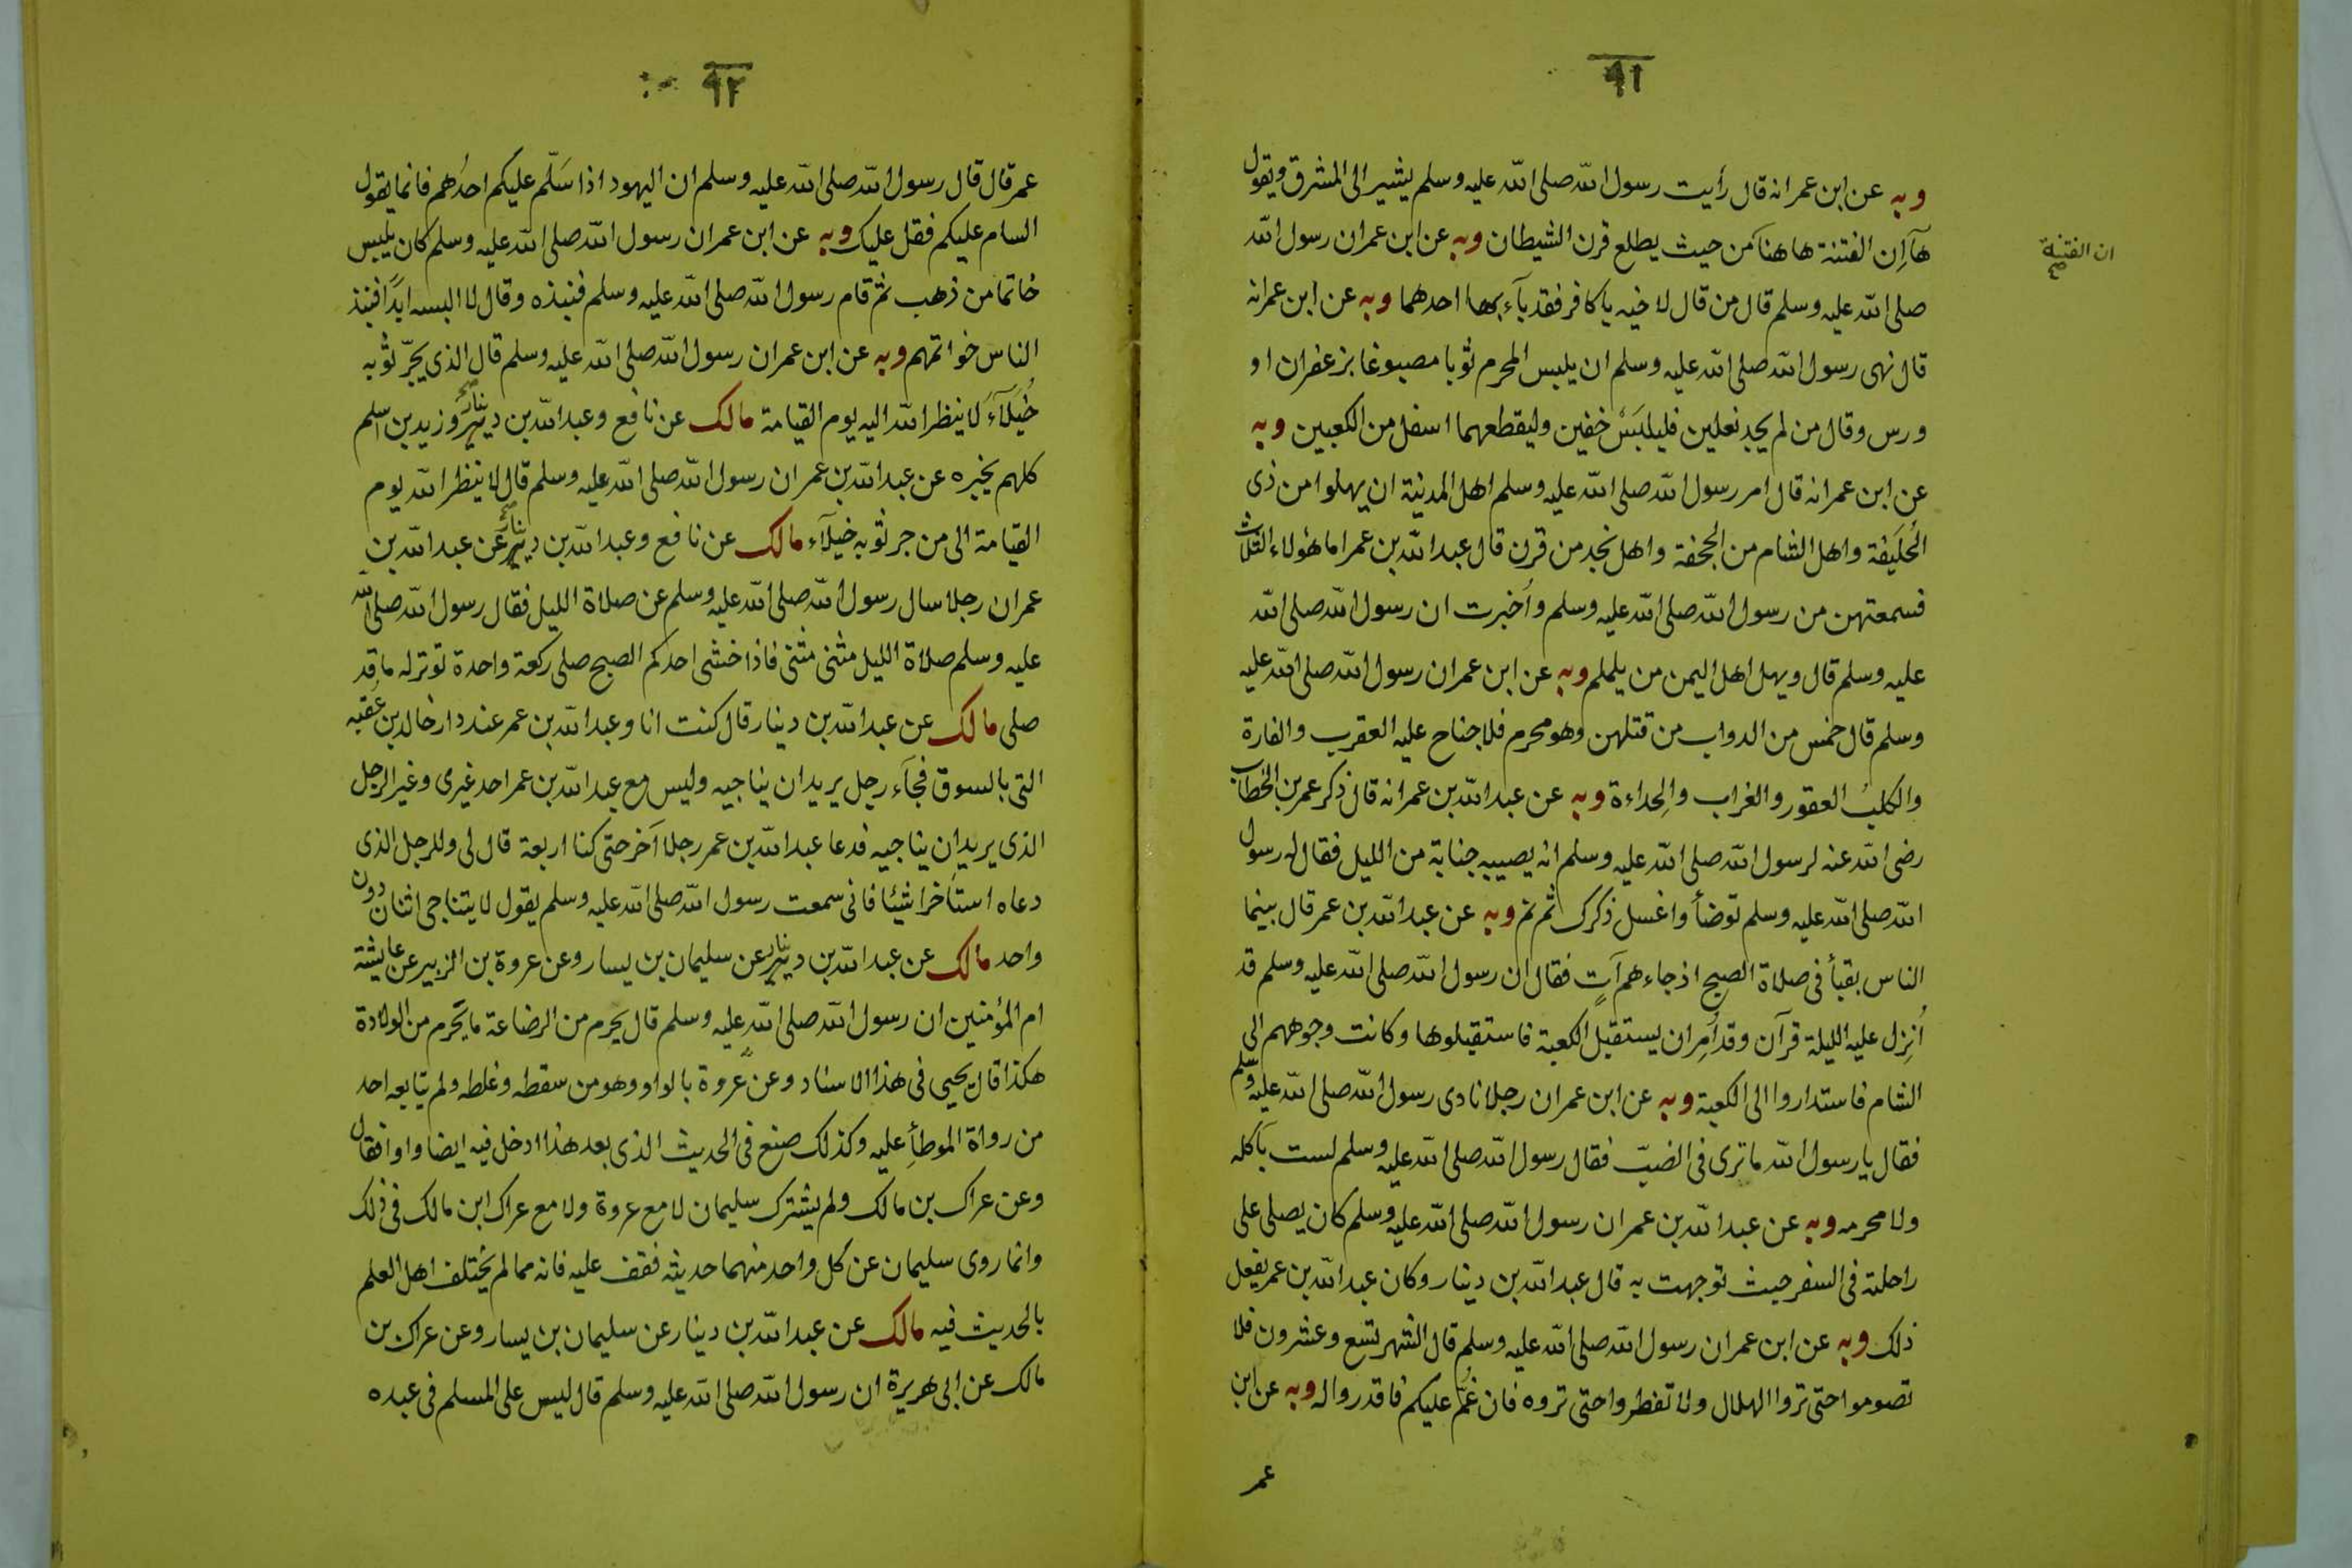 ٩١
وبه عن ابن عمر انه قال رأيت رسول الله صلى الله عليه وسلم يشير الى المشرق ويقول
هآ اِن الفتنة هاهنا من حيث يطلع قرن الشيطان وبه عن ابن عمر ان رسول الله
ان الفتنة
صلى الله عليه وسلم قال من قال لاخيه ياكافر فقد بآء بها احدهما وبه عن ابن عمر انه
قال نهى رسول الله صلى الله عليه وسلم ان يلبس المحرم ثوبا مصبوغا بزعفران او
ورس وقال من لم يجد نعلين فليلبَسْ خفين وليقطعهما اسفل من الكعبين وبه
عن ابن عمر انه قال امر رسول الله صلى الله عليه وسلم اهل المدينة ان يهلوا من ذى
الحُلَيفة واهل الشام من الجحفة واهل نجد من قرن قال عبد الله بن عمر اما هٰؤلاء الثلاث
فسمعتهن من رسول الله صلى الله عليه وسلم وأُخبرت ان رسول الله صلى الله
عليه وسلم قال ويهل اهل اليمن من يلملم وبه عن ابن عمر ان رسول الله صلى الله عليه
وسلم قال خمس من الدواب من قتلهن وهو محرم فلا جناح عليه العقرب والفارة
والكلبُ العقور والغراب والحِداءة وبه عن عبد الله بن عمر انه قال ذكر عمر بن الخطاب
رضى الله عنه لرسول الله صلى الله عليه وسلم انه يصيبه جنابة من الليل فقال له رسول
الله صلى الله عليه وسلم توضأ واغسل ذكرك ثم نم وبه عن عبد الله بن عمر قال بينما
الناس بقبأ فى صلاة الصبح اذ جاءهم آتٍ فقال ان رسول الله صلى الله عليه وسلم قد
اُنِزل عليه الليلة قرآن وقد اُمِر ان يستقبل الكعبة فاستقبلوها وكانت وجوههم الى
الشام فاستداروا الى الكعبة وبه عن ابن عمر ان رجلا نادى رسول الله صلى الله عليه وسلم
فقال يا رسول الله ما ترى فى الضبّ فقال رسول الله صلى الله عليه وسلم لست بآكله
ولا محرمه وبه عن عبد الله بن عمر ان رسول الله صلى الله عليه وسلم كان يصلى على
راحلته فى السفر حيث توجهت به قال عبد الله بن دينار وكان عبد الله بن عمر يفعل
ذلك وبه عن ابن عمر ان رسول الله صلى الله عليه وسلم قال الشهر تسع وعشرون فلا
تصوموا حتى تروا الهلال ولا تفطروا حتى تروه فان غُمّ عليكم فاقدروا له وبه عن ابن
عمر
٩٢
عمر قال قال رسول الله صلى الله عليه وسلم ان اليهود اذا سَلّم عليكم احدُهم فانما يقول
السام عليكم فقل عليك وبه عن ابن عمر ان رسول الله صلى الله عليه وسلم كان يلبس
خاتما من ذهب ثم قام رسول الله صلى الله عليه وسلم فنبذه وقال لا البسه ابدًا فنبذ
الناس خواتمهم وبه عن ابن عمر ان رسول الله صلى الله عليه وسلم قال الذى يجرّ ثوبه
خُيَلآءَ لا ينظر الله اليه يوم القيامة مالك عن نافع وعبد الله بن دينار وزيد بن اسلم
كلهم يخبره عن عبد الله بن عمر ان رسول الله صلى الله عليه وسلم قال لا ينظر الله يوم
القيامة الى من جر ثوبه خيلآء مالك عن نافع وعبد الله بن دينار عن عبد الله بن
عمر ان رجلا سال رسول الله صلى الله عليه وسلم عن صلاة الليل فقال رسول الله صلى الله
عليه وسلم صلاة الليل مثنى مثنى فاذا خشى احدكم الصبح صلى ركعة واحدة توتر له ما قد
صلى مالك عن عبد الله بن دينار قال كنت انا وعبد الله بن عمر عند دار خالد بن عُقبه
التى بالسوق فجآء رجل يريد ان يناجيه وليس مع عبد الله بن عمر احد غيرى وغير الرجل
الذى يريد ان يناجيه فدعا عبد الله بن عمر رجلا آخر حتى كنا اربعة قال لى وللرجل الذى
دعاه استاخرا شيئا فانى سمعت رسول الله صلى الله عليه وسلم يقول لا يتناجى اثنان دون
واحد مالك عن عبد الله بن دينار عن سليمان بن يسار وعن عروة بن الزبير عن عايشة
ام المؤمنين ان رسول الله صلى الله عليه وسلم قال يحرم من الرضاعة ما يحرم من الولادة
هكذا قال يحيى فى هذا الاسناد وعن عروة بالواو وهو من سقطه وغلطه ولم يتابعه احد
من رواة الموطأ عليه وكذلك صنع فى الحديث الذى بعد هذا ادخل فيه ايضا واوا فقال
وعن عراك بن مالك ولم يشترك سليمان لا مع عروة ولا مع عراك ابن مالك فى ذلك
وانما روى سليمان عن كل واحد منهما حديثه فقف عليه فانه مما لم يختلف اهل العلم
بالحديث فيه مالك عن عبد الله بن دينار عن سليمان بن يسار وعن عراك بن
مالك عن ابى هريرة ان رسول الله صلى الله عليه وسلم قال ليس على المسلم فى عبده